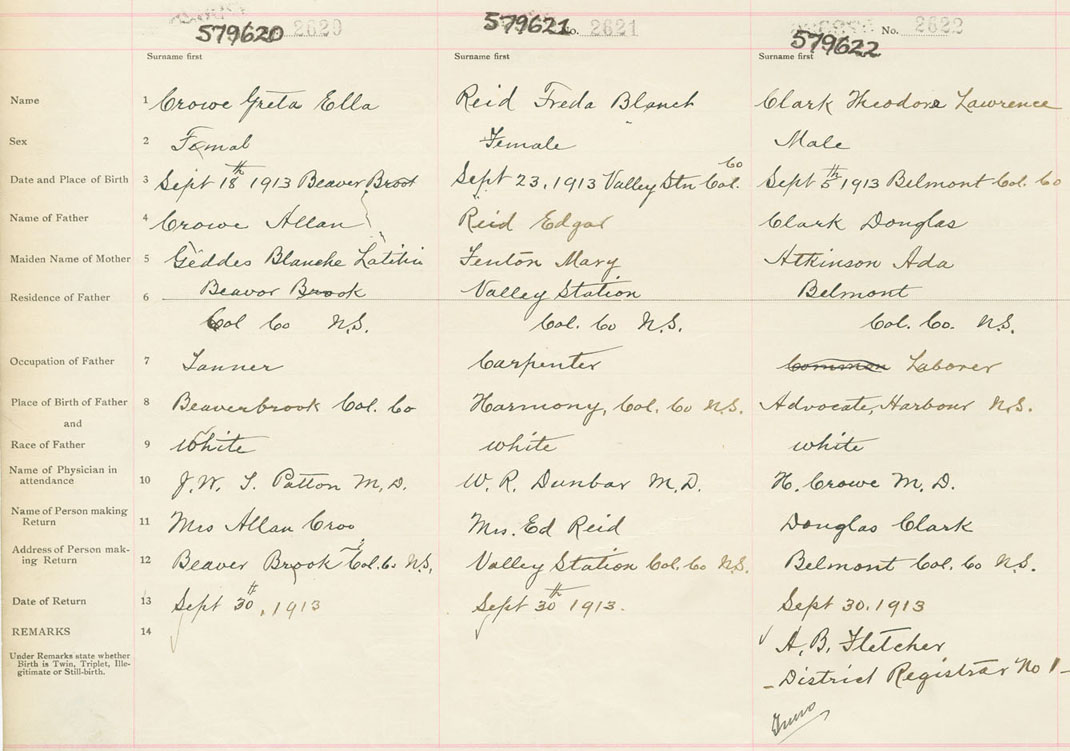 579620 2620
579621 No. 2621
579622 No. 2622
Surname first Surname first Surname first
Name 1 Crowe Greta Ella Reid Freda Blanch Clark Theodore Lawrence
Sex 2 Femal Female Male
Date and Place of Birth 3 Sept 18th 1913 Beaver Broot Sept 23, 1913 Valley Stn Col. Co Sept 5th 1913 Belmont Col. Co
Name of Father 4 Crowe Allan Reid Edgar Clark Douglas
Maiden Name of Mother 5 Geddes Blanche Latitia Fenton Mary Atkinson Ada
Residence of Father 6 Beavor Brook Valley Station Belmont
Col Co N.S. Col. Co N.S. Col. Co. N.S.
Occupation of Father 7 Tanner Carpenter Common Laborer
Place of Birth of Father 8 Beaverbrook Col. Co Harmony, Col. Co N.S. Advocate, Harbour N.S.
and
Race of Father 9 White white white
Name of Physician in
attendance 10 J. W. T. Patton M. D. W. R. Dunbar M. D. H. Crowe M. D.
Name of Person making
Return 11 Mrs Allan Croo Mrs. Ed Reid Douglas Clark
Address of Person mak-
ing Return 12 Beaver Brook Col. Co N.S. Valley Station Col. Co N.S. Belmont Col. Co N.S.
Date of Return 13 Sept 30th, 1913 Sept 30th 1913. Sept 30, 1913
REMARKS 14
Under Remarks state whether
Birth is Twin, Triplet, Ille-
gitimate or Still-birth.
A. B. Fletcher
District Registrar No 1
Truro